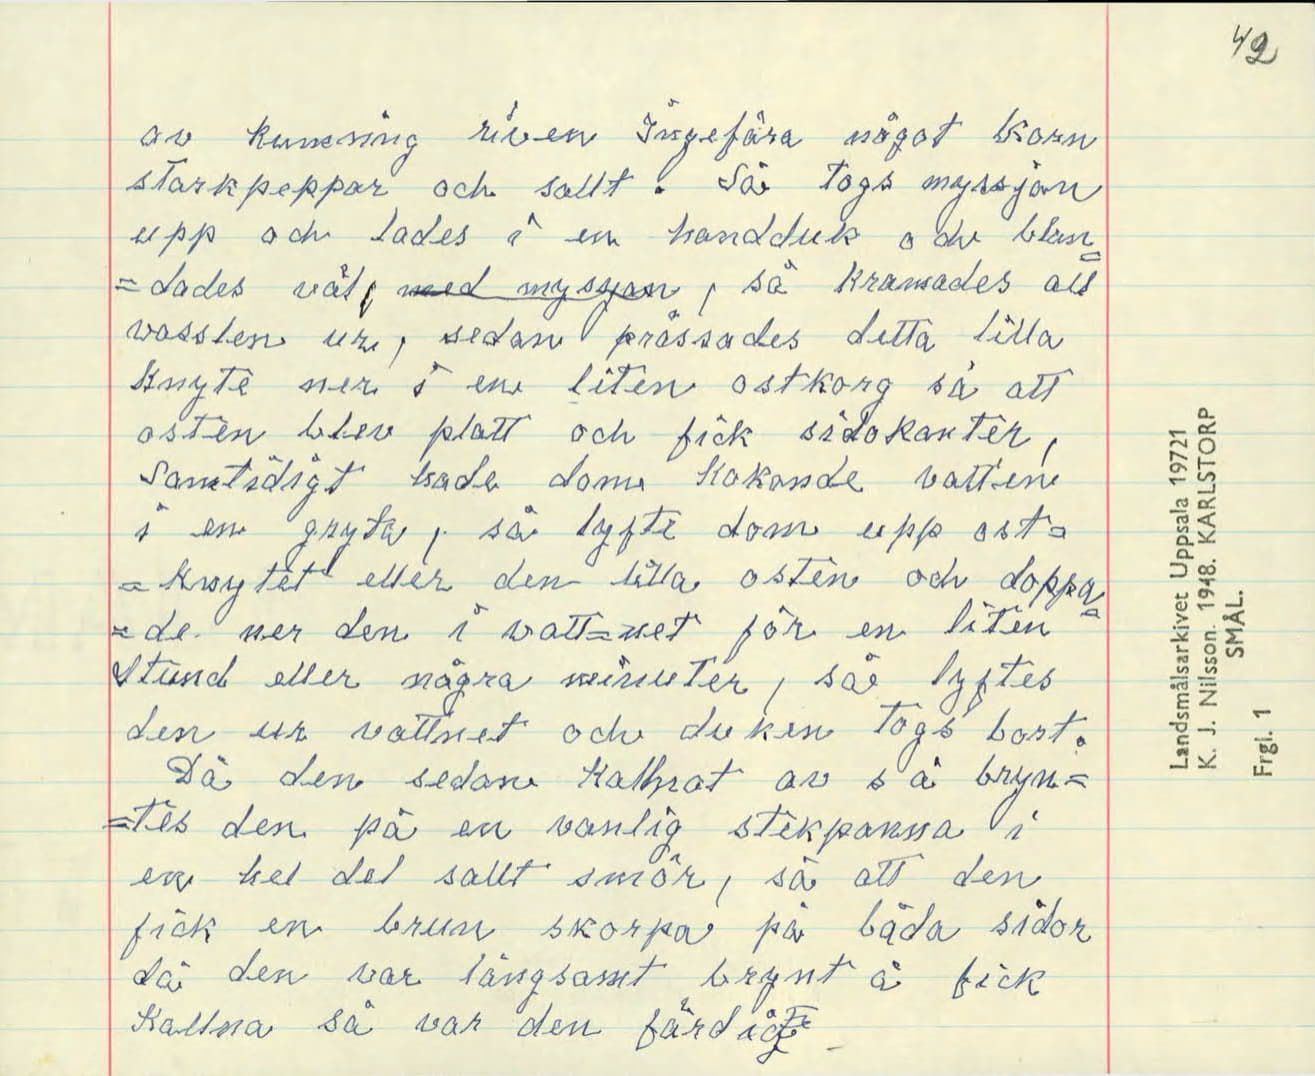 42
av kumming riven Ingefära något korn
starkpeppar och sallt. Så togs myssjan
upp och lades i en handduk och blan
=dades väl, med myssjan, så kramades all
vasslen ur, sedan prässades detta lilla
knyte ner i en liten ostkorg så att
osten blev platt och fick sidokanter,
Samtidigt hade dom kokande vatten
i en gryta, så lyfte dom upp ost=
=knytet eller den lilla osten och doppa
=de ner den i vatt=net för en liten
Stund eller några minuter, så lyftes
den ur vattnet och duken togs bort.
Då den sedan kallnat av så bryn=
=tes den på en vanlig stekpanna i
en hel del sallt smör, så att den
fick en brun skorpa på båda sidor
då den var långsamt brynt å fick
Kallna så var den färdig
Landsmålsarkivet Uppsala 19721
K. J. Nilsson. 1948. KARLSTORP
SMÅL.
Frgl. 1